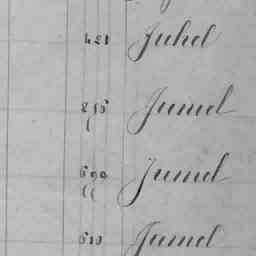 421 Juhel
816 Jumel
690 Jumel
613 Jumel